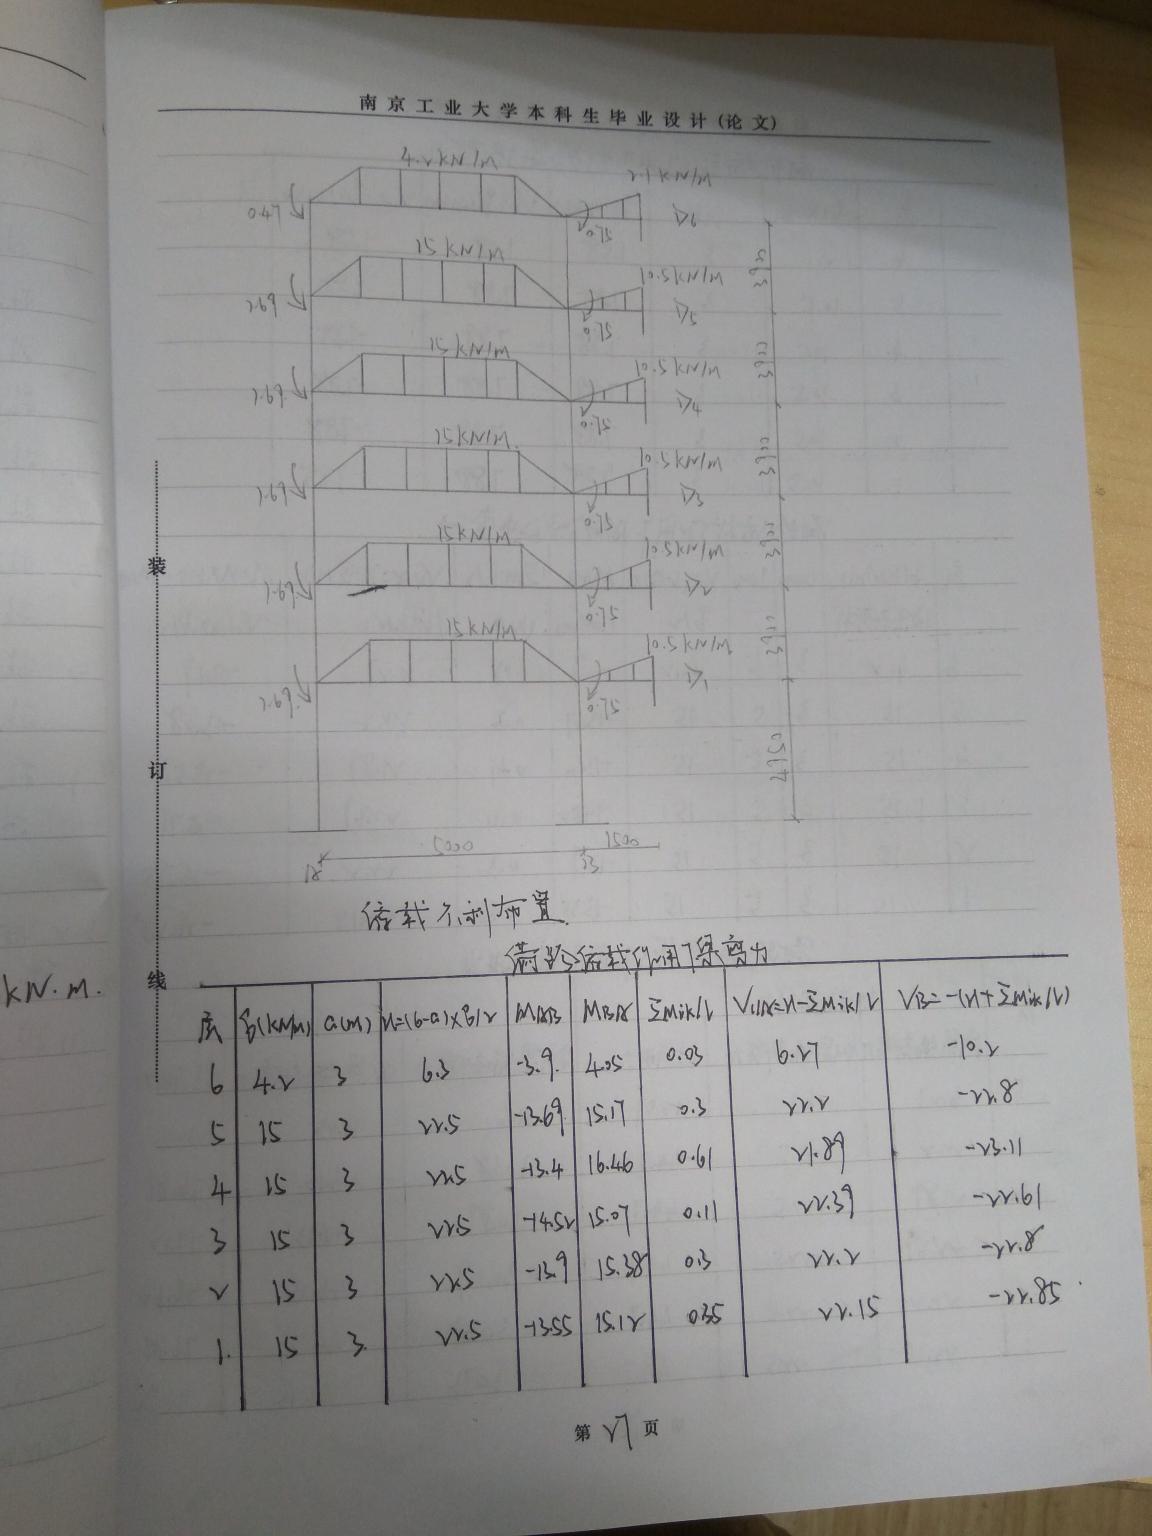 南京工业大学本科生毕业设计(论文)
4.2kN/m
2.1kN/m
0.47
0.75
D6
15kN/m
10.5kN/m
2.69
0.75
D5
3900
15kN/m
10.5kN/m
2.69
0.75
D4
3900
15kN/m
10.5kN/m
2.69
0.75
D3
3900
15kN/m
10.5kN/m
2.69
0.75
D2
3900
15kN/m
10.5kN/m
2.69
0.75
D1
3900
4950
5000
1500
A
B
装
订
线
kN·m.
活载不利布置
满跨活载作用下梁剪力
层 q(kN/m) a(m) u=(6-a)×q/2 MAB MBA ΣMik/l V1/A=u-ΣMik/l VB=-(u+ΣMik/l)
6 4.2 3 6.3 -3.9 4.05 0.03 6.27 -10.2
5 15 3 22.5 -13.69 15.17 0.3 22.2 -22.8
4 15 3 22.5 -13.4 16.46 0.61 21.89 -23.11
3 15 3 22.5 -14.52 15.07 0.11 22.39 -22.61
2 15 3 22.5 -13.9 15.38 0.3 22.2 -22.8
1. 15 3. 22.5 -13.55 15.12 0.35 22.15 -22.85
第 27 页